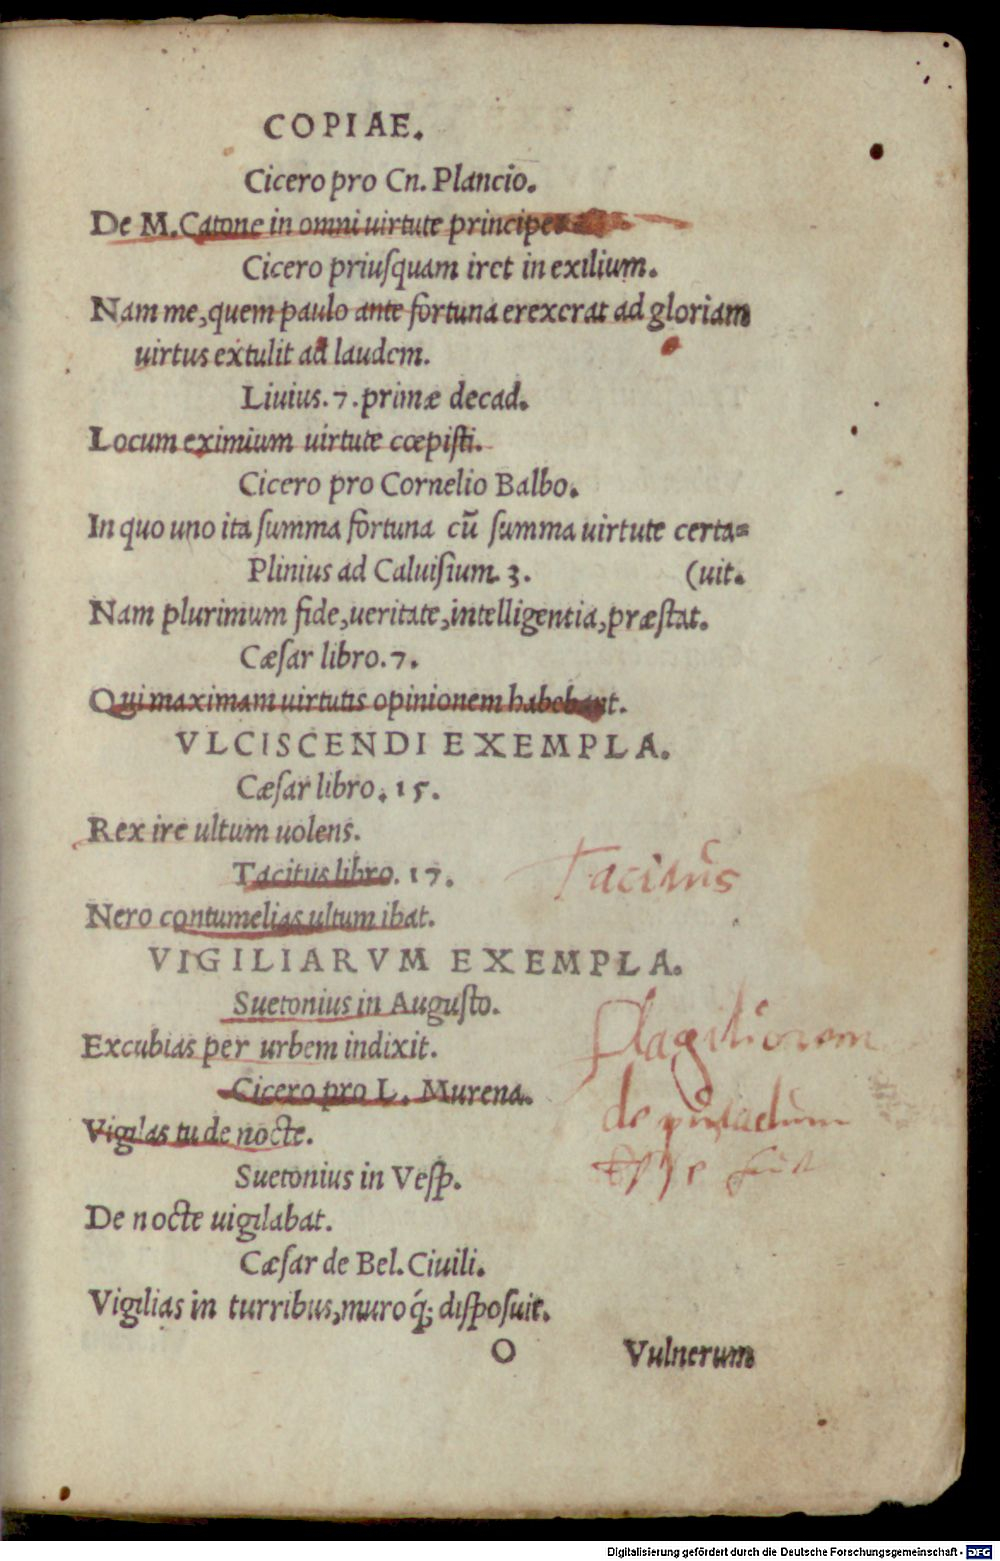 COPIAE.
Cicero pro Cn. Plancio.
De M. Catone in omni uirtute principe
Cicero priuſquam iret in exilium.
Nam me, quem paulo ante fortuna erexerat ad gloriam
uirtus extulit ad laudem.
Liuius. 7. primæ decad.
Locum eximium uirtute cœpiſti.
Cicero pro Cornelio Balbo.
In quo uno ita ſumma fortuna cū ſumma uirtute certa=
Plinius ad Caluiſium. 3. (uit.
Nam plurimum fide, ueritate, intelligentia, præſtat.
Cæſar libro. 7.
Qui maximam uirtutis opinionem habebant.
VLCISCENDI EXEMPLA.
Cæſar libro. 15.
Rex ire ultum uolens.
Tacitus libro. 17. Tacitus
Nero contumelias ultum ibat.
VIGILIARVM EXEMPLA.
Suetonius in Auguſto.
Excubias per urbem indixit. flagitiorem
Cicero pro L. Murena.
Vigilas tu de nocte. de
Suetonius in Veſp.
De nocte uigilabat.
Cæſar de Bel. Ciuili.
Vigilias in turribus, muroq́; diſpoſuit.
O Vulnerum
Digitalisierung gefördert durch die Deutsche Forschungsgemeinschaft - DFG